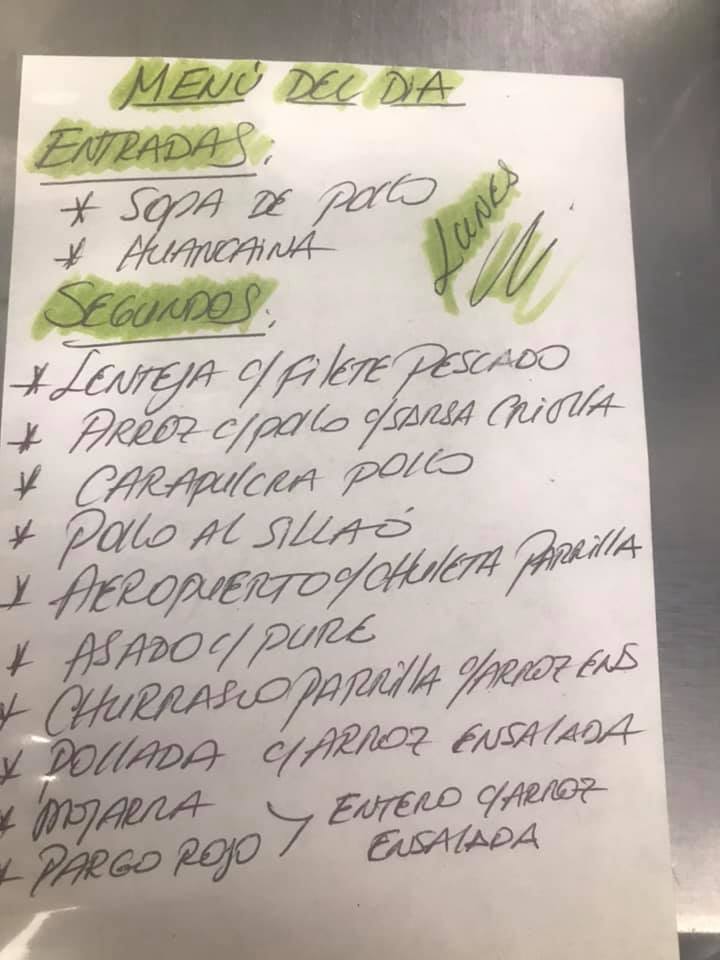 MENÚ DEL DIA
ENTRADAS:
* SOPA DE POLLO
* HUANCAINA
LUNES
SEGUNDOS:
* LENTEJA C/ FILETE PESCADO
* ARROZ C/POLLO C/SARSA CRIOLLA
* CARAPULCRA POLLO
* POLLO AL SILLAÓ
* AEROPUERTO C/CHULETA PARRILLA
* ASADO C/ PURE
* CHURRASCO PARRILLA C/ARROZ ENS
* POLLADA C/ARROZ ENSALADA
* MOJARRA
* PARGO ROJO
ENTERO C/ARROZ
ENSALADA